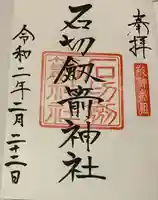 奉拝
石切劔箭神社
令和二年二月二十二日